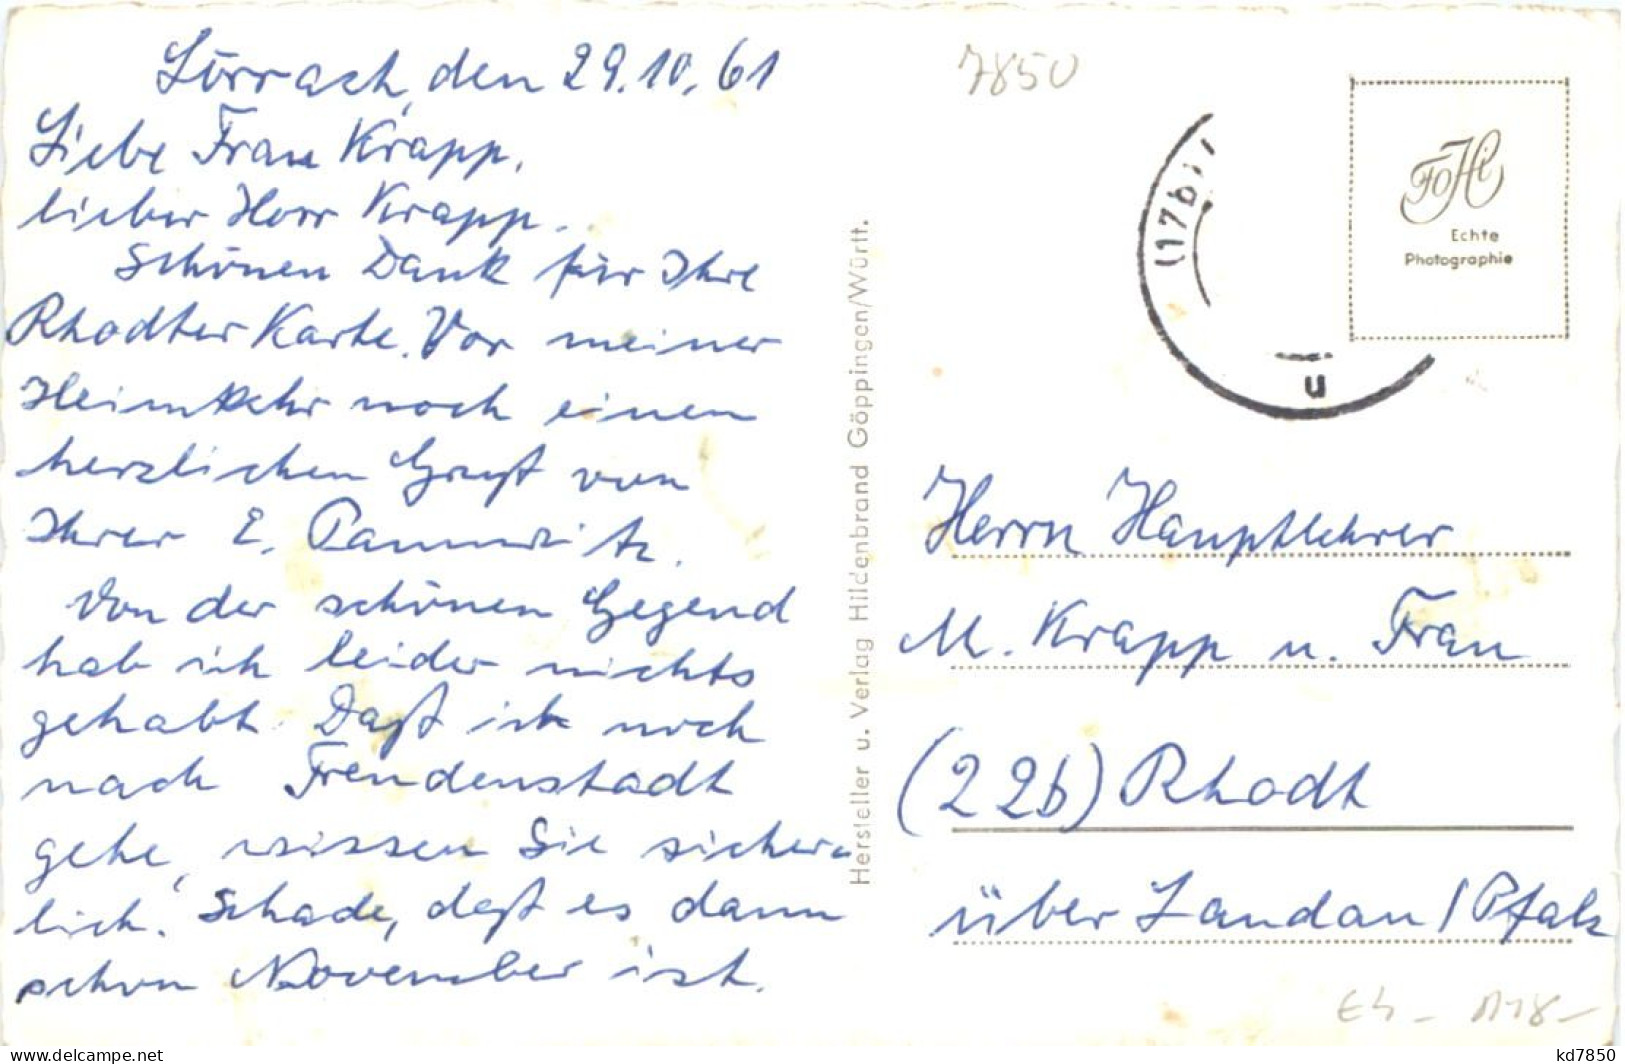 Lörrach, den 29.10.61
Liebe Frau Krapp,
lieber Herr Krapp.
Schönen Dank für Ihre
Rhodter Karte. Vor meiner
Heimkehr noch einen
herzlichen Gruß von
Ihrer E. Pannwitz.
Von der schönen Gegend
hab ich leider nichts
gehabt. Daß ich noch
nach Freudenstadt
gehe, wissen Sie sicher-
lich. Schade, daß es dann
schon November ist.
Hersteller u. Verlag Hildenbrand Göppingen/Württ.
7850
(17b)
u
FOHi
Echte
Photographie
Herrn Hauptlehrer
M. Krapp u. Frau
(22b) Rhodt
über Landau/Pfalz
kd7850
www.delcampe.net